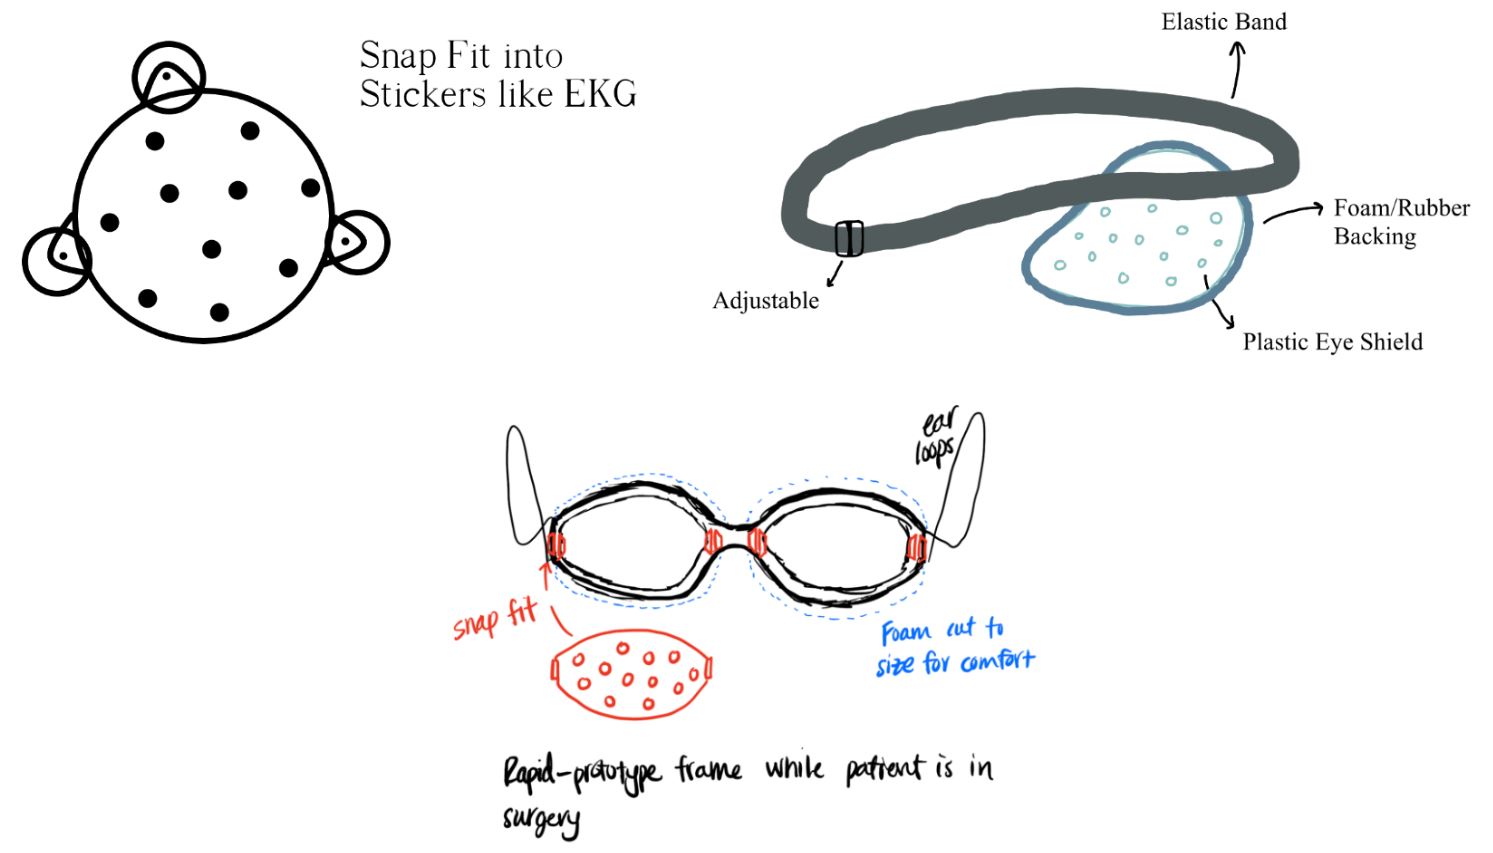 Snap Fit into
Stickers like EKG
Elastic Band
Foam/Rubber
Backing
Adjustable
Plastic Eye Shield
ear
loops
snap fit
Foam cut to
size for comfort
Rapid-prototype frame while patient is in
surgery